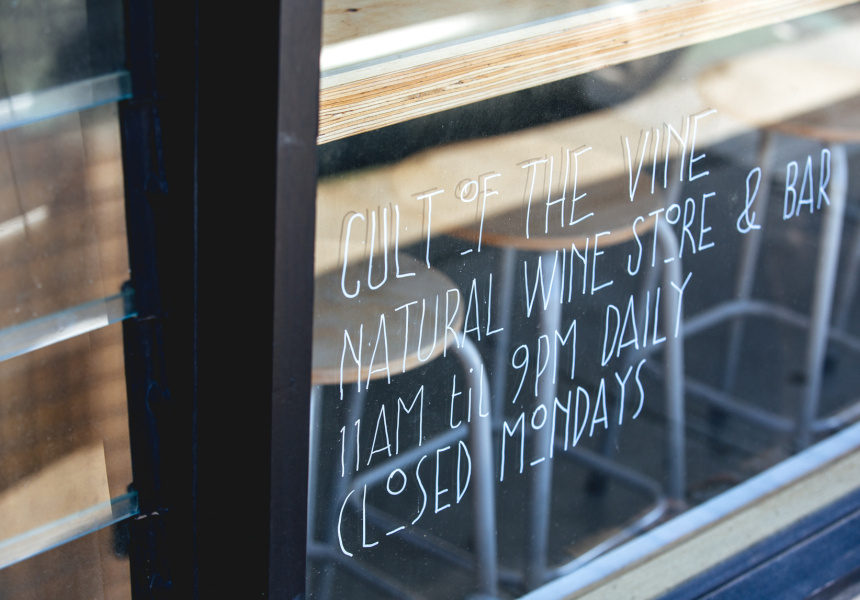 CULT OF THE VINE
NATURAL WINE STORE & BAR
11AM til 9PM DAILY
CLOSED MONDAYS